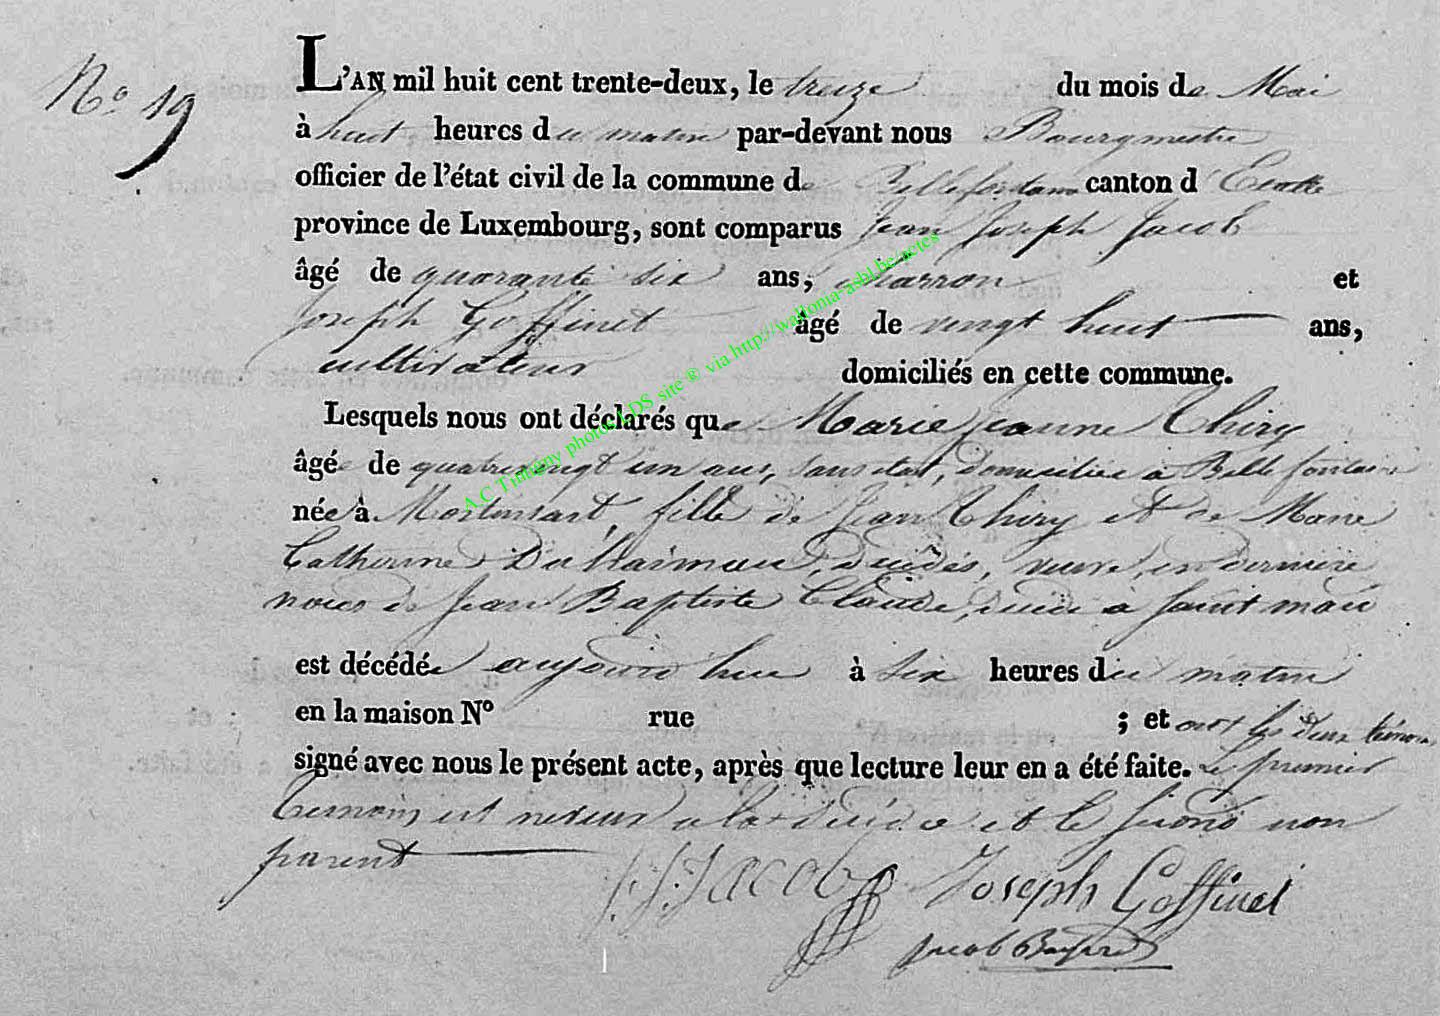 No 19
L'AN mil huit cent trente-deux, le treize du mois de Mai
à huit heures du matin par-devant nous Bourgmestre
officier de l'état civil de la commune de Bellefontaine canton d'Etalle
province de Luxembourg, sont comparus Jean Joseph Jacob
âgé de quarante six ans, charron et
Joseph Goffinet âgé de vingt huit ans,
cultivateur domiciliés en cette commune.
Lesquels nous ont déclarés que Marie Jeanne Thiry
âgée de quatrevingt un ans, sans état, domiciliée à Bellefontaine
née à Mortinsart, fille de Jean Thiry et de Marie
Catherine décédés, veuve en dernière
noces de Jean Baptiste Claude, à Saint
est décédée aujourd'hui à six heures du matin
en la maison No rue ; et ont les deux témoins
signé avec nous le présent acte, après que lecture leur en a été faite. Le premier
témoin est neveu à la décédée et le second non
parent
J. J. Jacob Joseph Goffinet
Jacob
A.C Tintigny photos LDS site ® via http://wallonia-asbl.be/actes